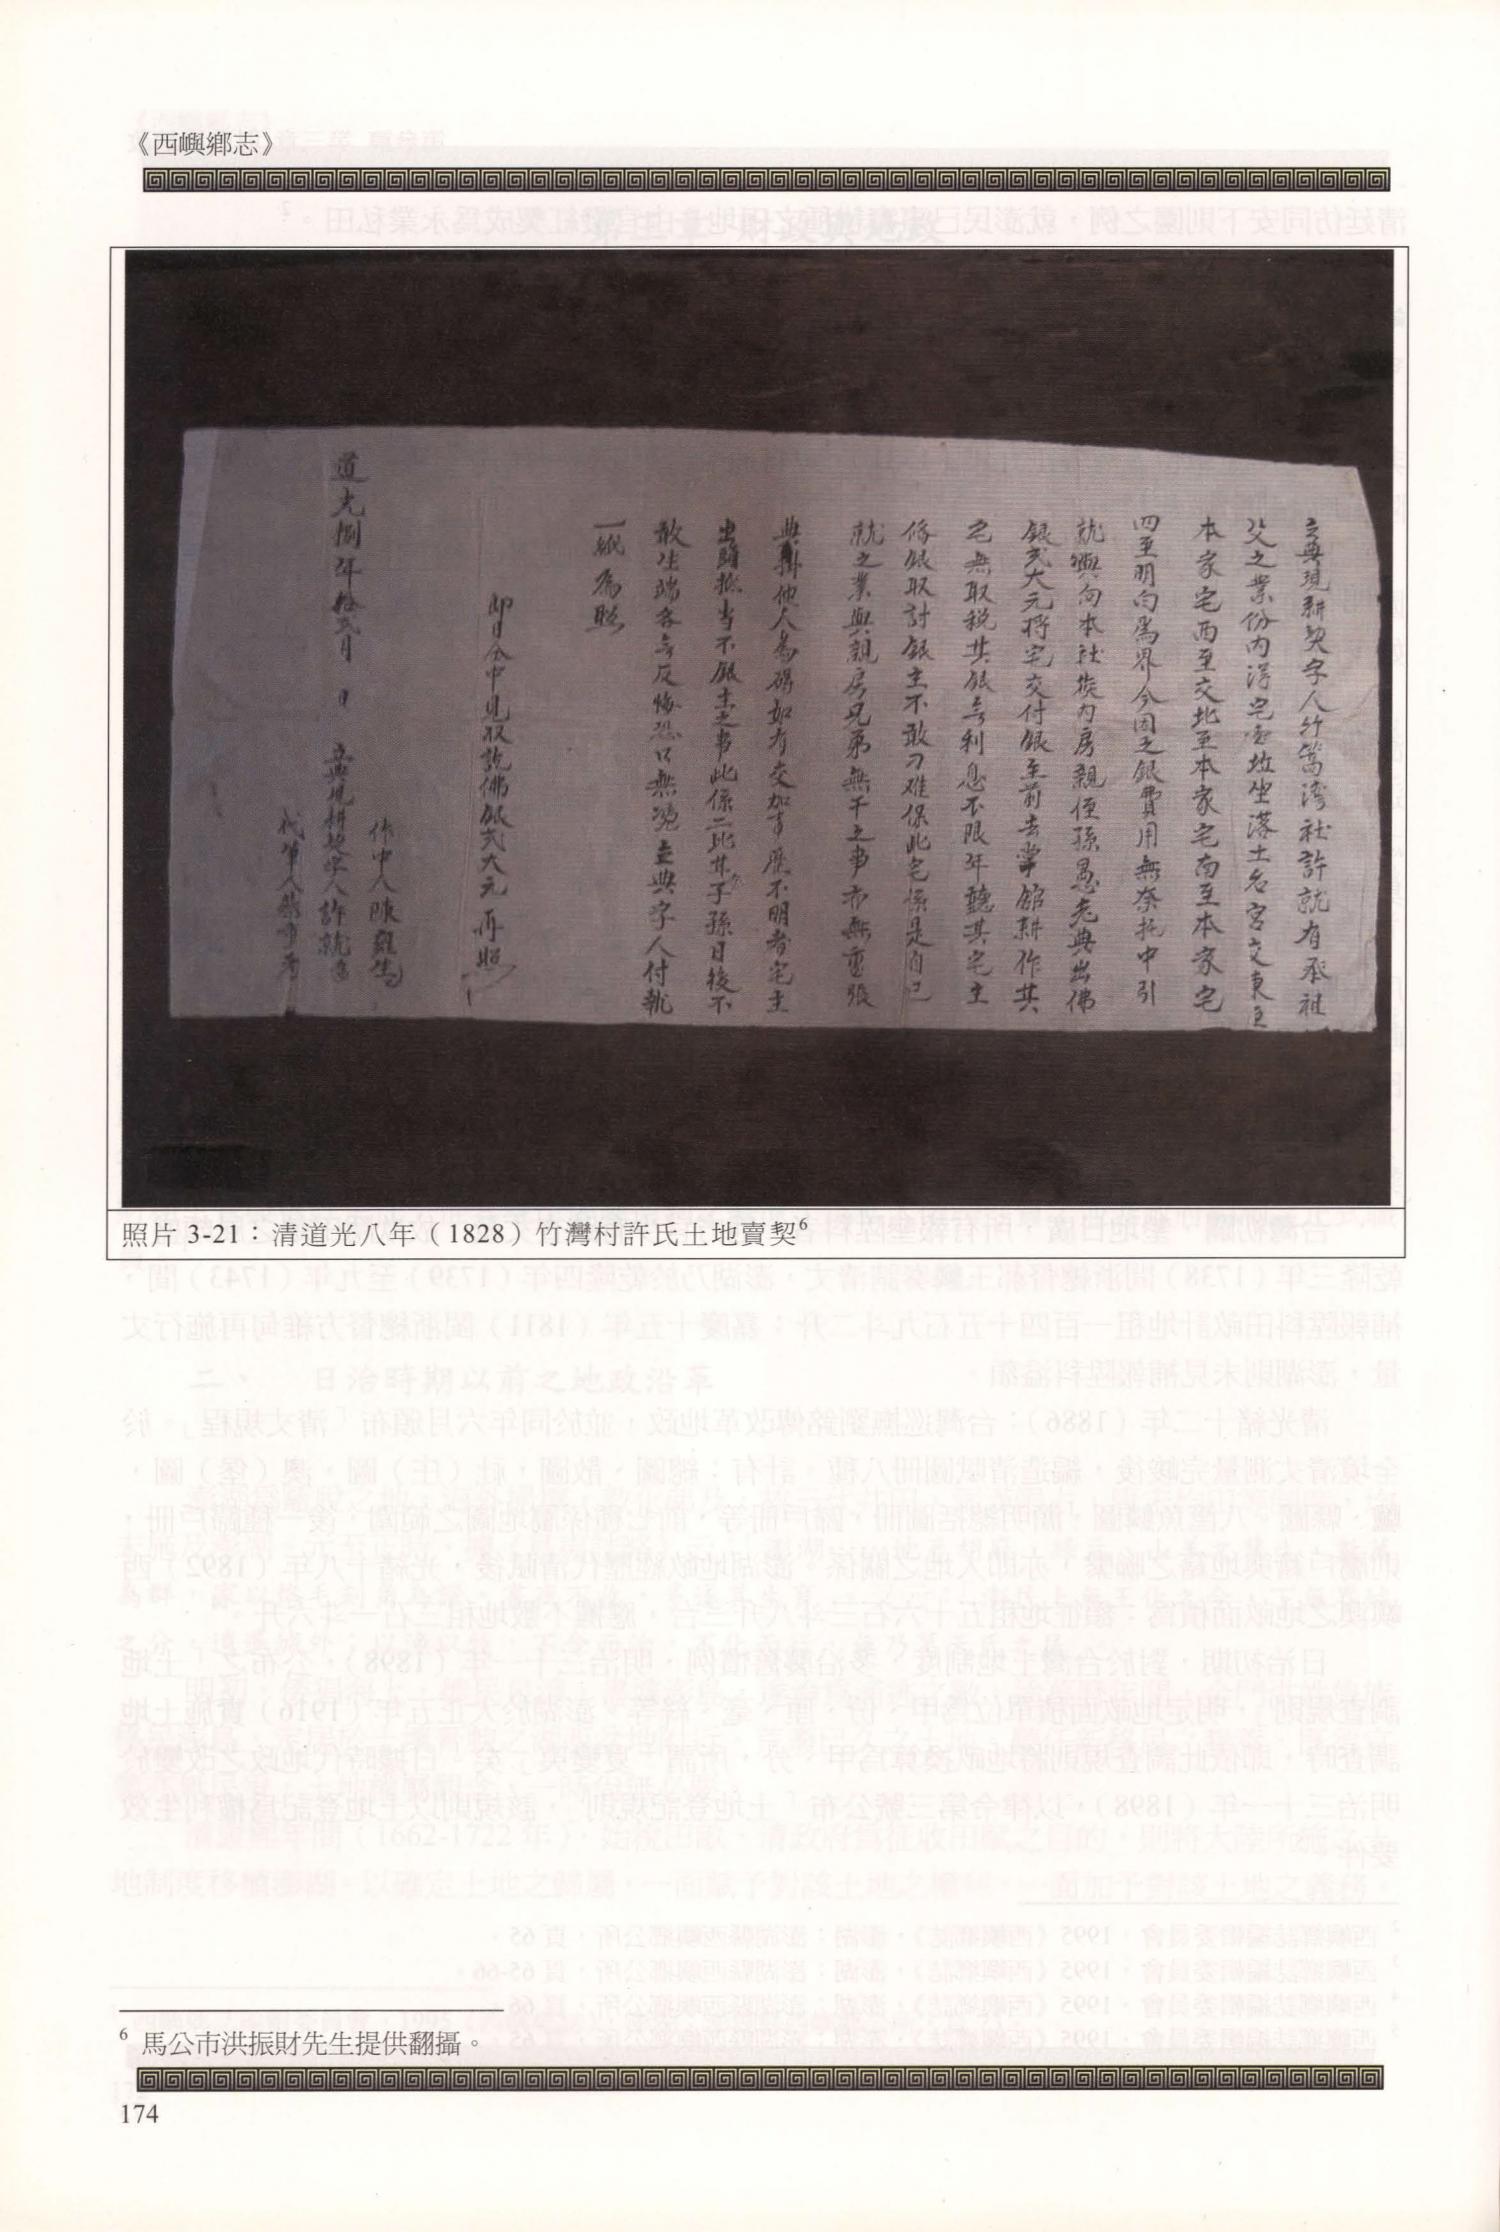 《西嶼鄉志》
立典現耕契字人竹篙灣社許就有承祖
父之業份內浮宅壹坵坐落土名宮交東至
本家宅西至交北至本家宅南至本家宅
四至明向爲界今因乏銀費用無奈托中引
就與向本社族內房親侄孫愚老典出佛
銀弍大元將宅交付銀主前去掌舘耕作其
宅無取稅其銀無利息不限年聽其宅主
俻銀取討銀主不敢刁难保此宅係是自己
就之業與親房兄弟無干之事亦無重張
典掛他人爲碍如有交加事歷不明者宅主
出頭抵当不銀主之事此係二比甘愿子孫日後不
敢生端各無反悔恐口無凴立典字人付執
一紙爲照
即日仝中見收訖佛銀弍大元 再照
作中人陳
道光捌年拾弍月 日 立典現耕契字人許就
代筆人蔡
照片 3-21：清道光八年（1828）竹灣村許氏土地賣契6
6 馬公市洪振財先生提供翻攝。
174